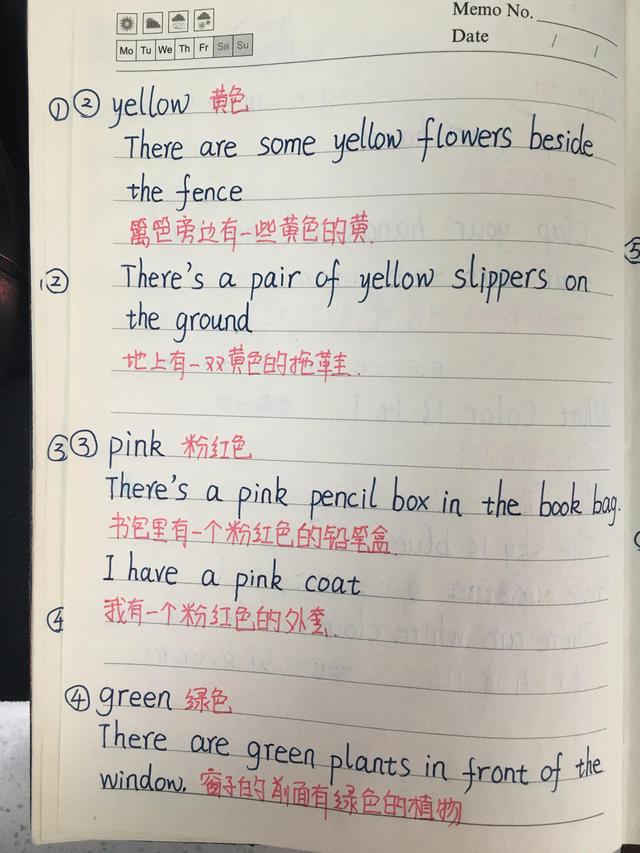 Memo No.
Mo Tu We Th Fr Sa Su
Date / /
① ② yellow 黄色
There are some yellow flowers beside
the fence
篱笆旁边有一些黄色的黄.
1② There's a pair of yellow slippers on
the ground
地上有一双黄色的拖鞋.
③ ③ pink 粉红色
There's a pink pencil box in the book bag.
书包里有一个粉红色的铅笔盒
I have a pink coat
④ 我有一个粉红色的外套.
④ green 绿色
There are green plants in front of the
window. 窗子的前面有绿色的植物